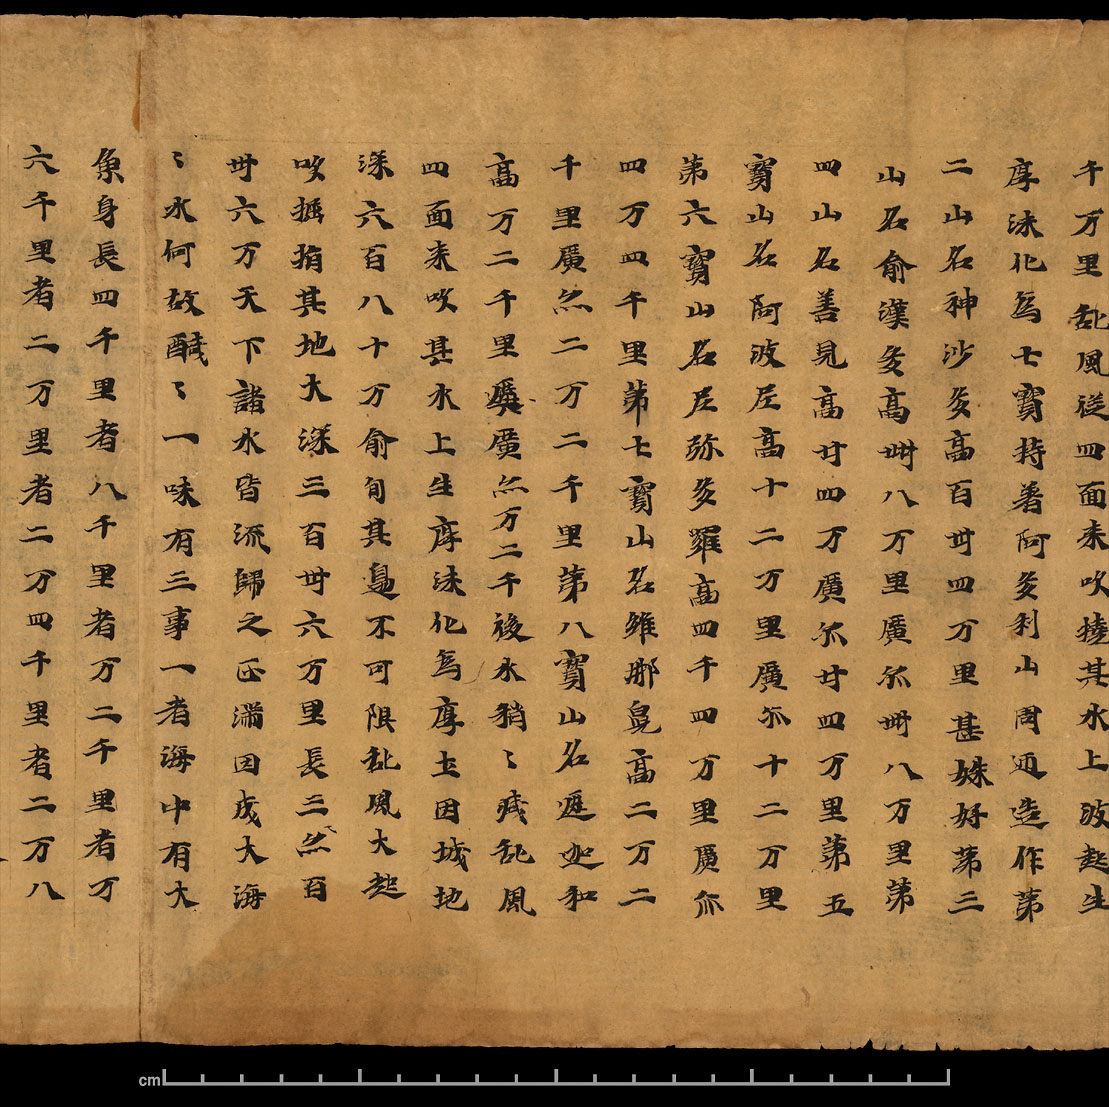 千万里乱風從四面来吹撓其水上波起生
摩沫化為七寳持著阿炙利山周迊造作苐
二山名神沙炙高百丗四万里甚姝好苐三
山名俞漢炙高卌八万里廣尒卌八万里苐
四山名善見高廿四万廣尒廿四万里苐五
寳山名阿波尼高十二万里廣尒十二万里
苐六寳山名尼弥炙羅高四千四万里廣尒
四万四千里苐七寳山名維那兜高二万二
千里廣亦二万二千里苐八寳山名迦和
高万二千里廣亦万二千後水稍〻减乱風
四面来吹其水上生摩沫化為摩土因城地
深六百八十万俞旬其邊不可限乱風大起
吹掘其地大深三百丗六万里長三百
丗六万天下諸水皆流歸之正滿因成大海
〻水何故醎〻一味有三事一者海中有大
魚身長四千里者八千里者万二千里者万
六千里者二万里者二万四千里者二万八